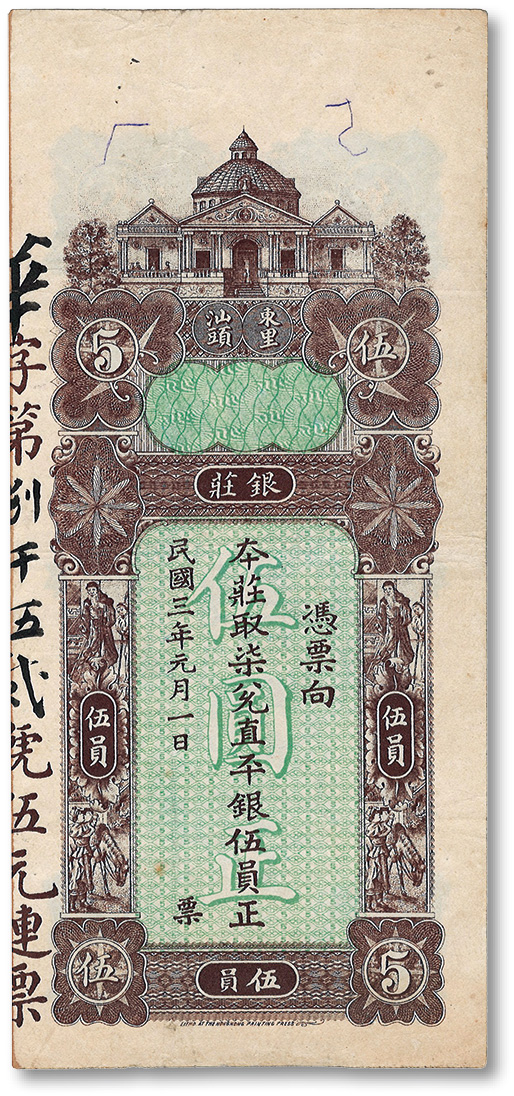 5
伍
東里
汕頭
銀莊
憑票向
本莊取柒兌直平銀伍員正
票
民國三年元月一日
伍圓正
伍員
伍員
伍
伍員
5
字第
號伍元連票
LITHO AT THE HONGKONG PRINTING PRESS